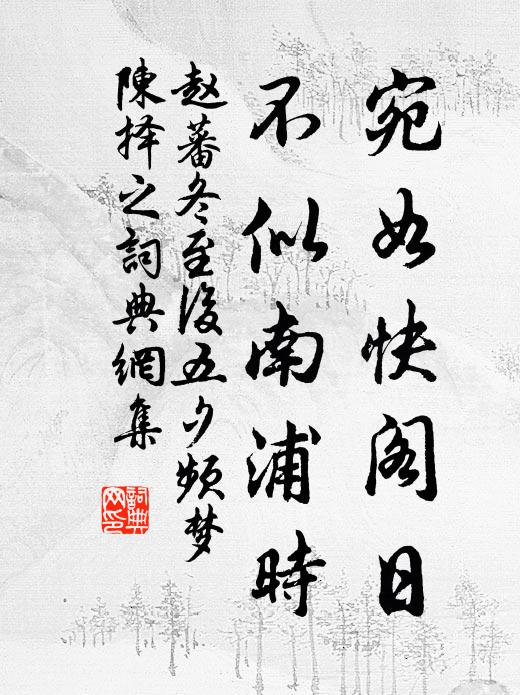 宛如快阁日
不似南浦時
赵蕃冬至後五夕频梦
陳择之詞典網集
詞典
网印